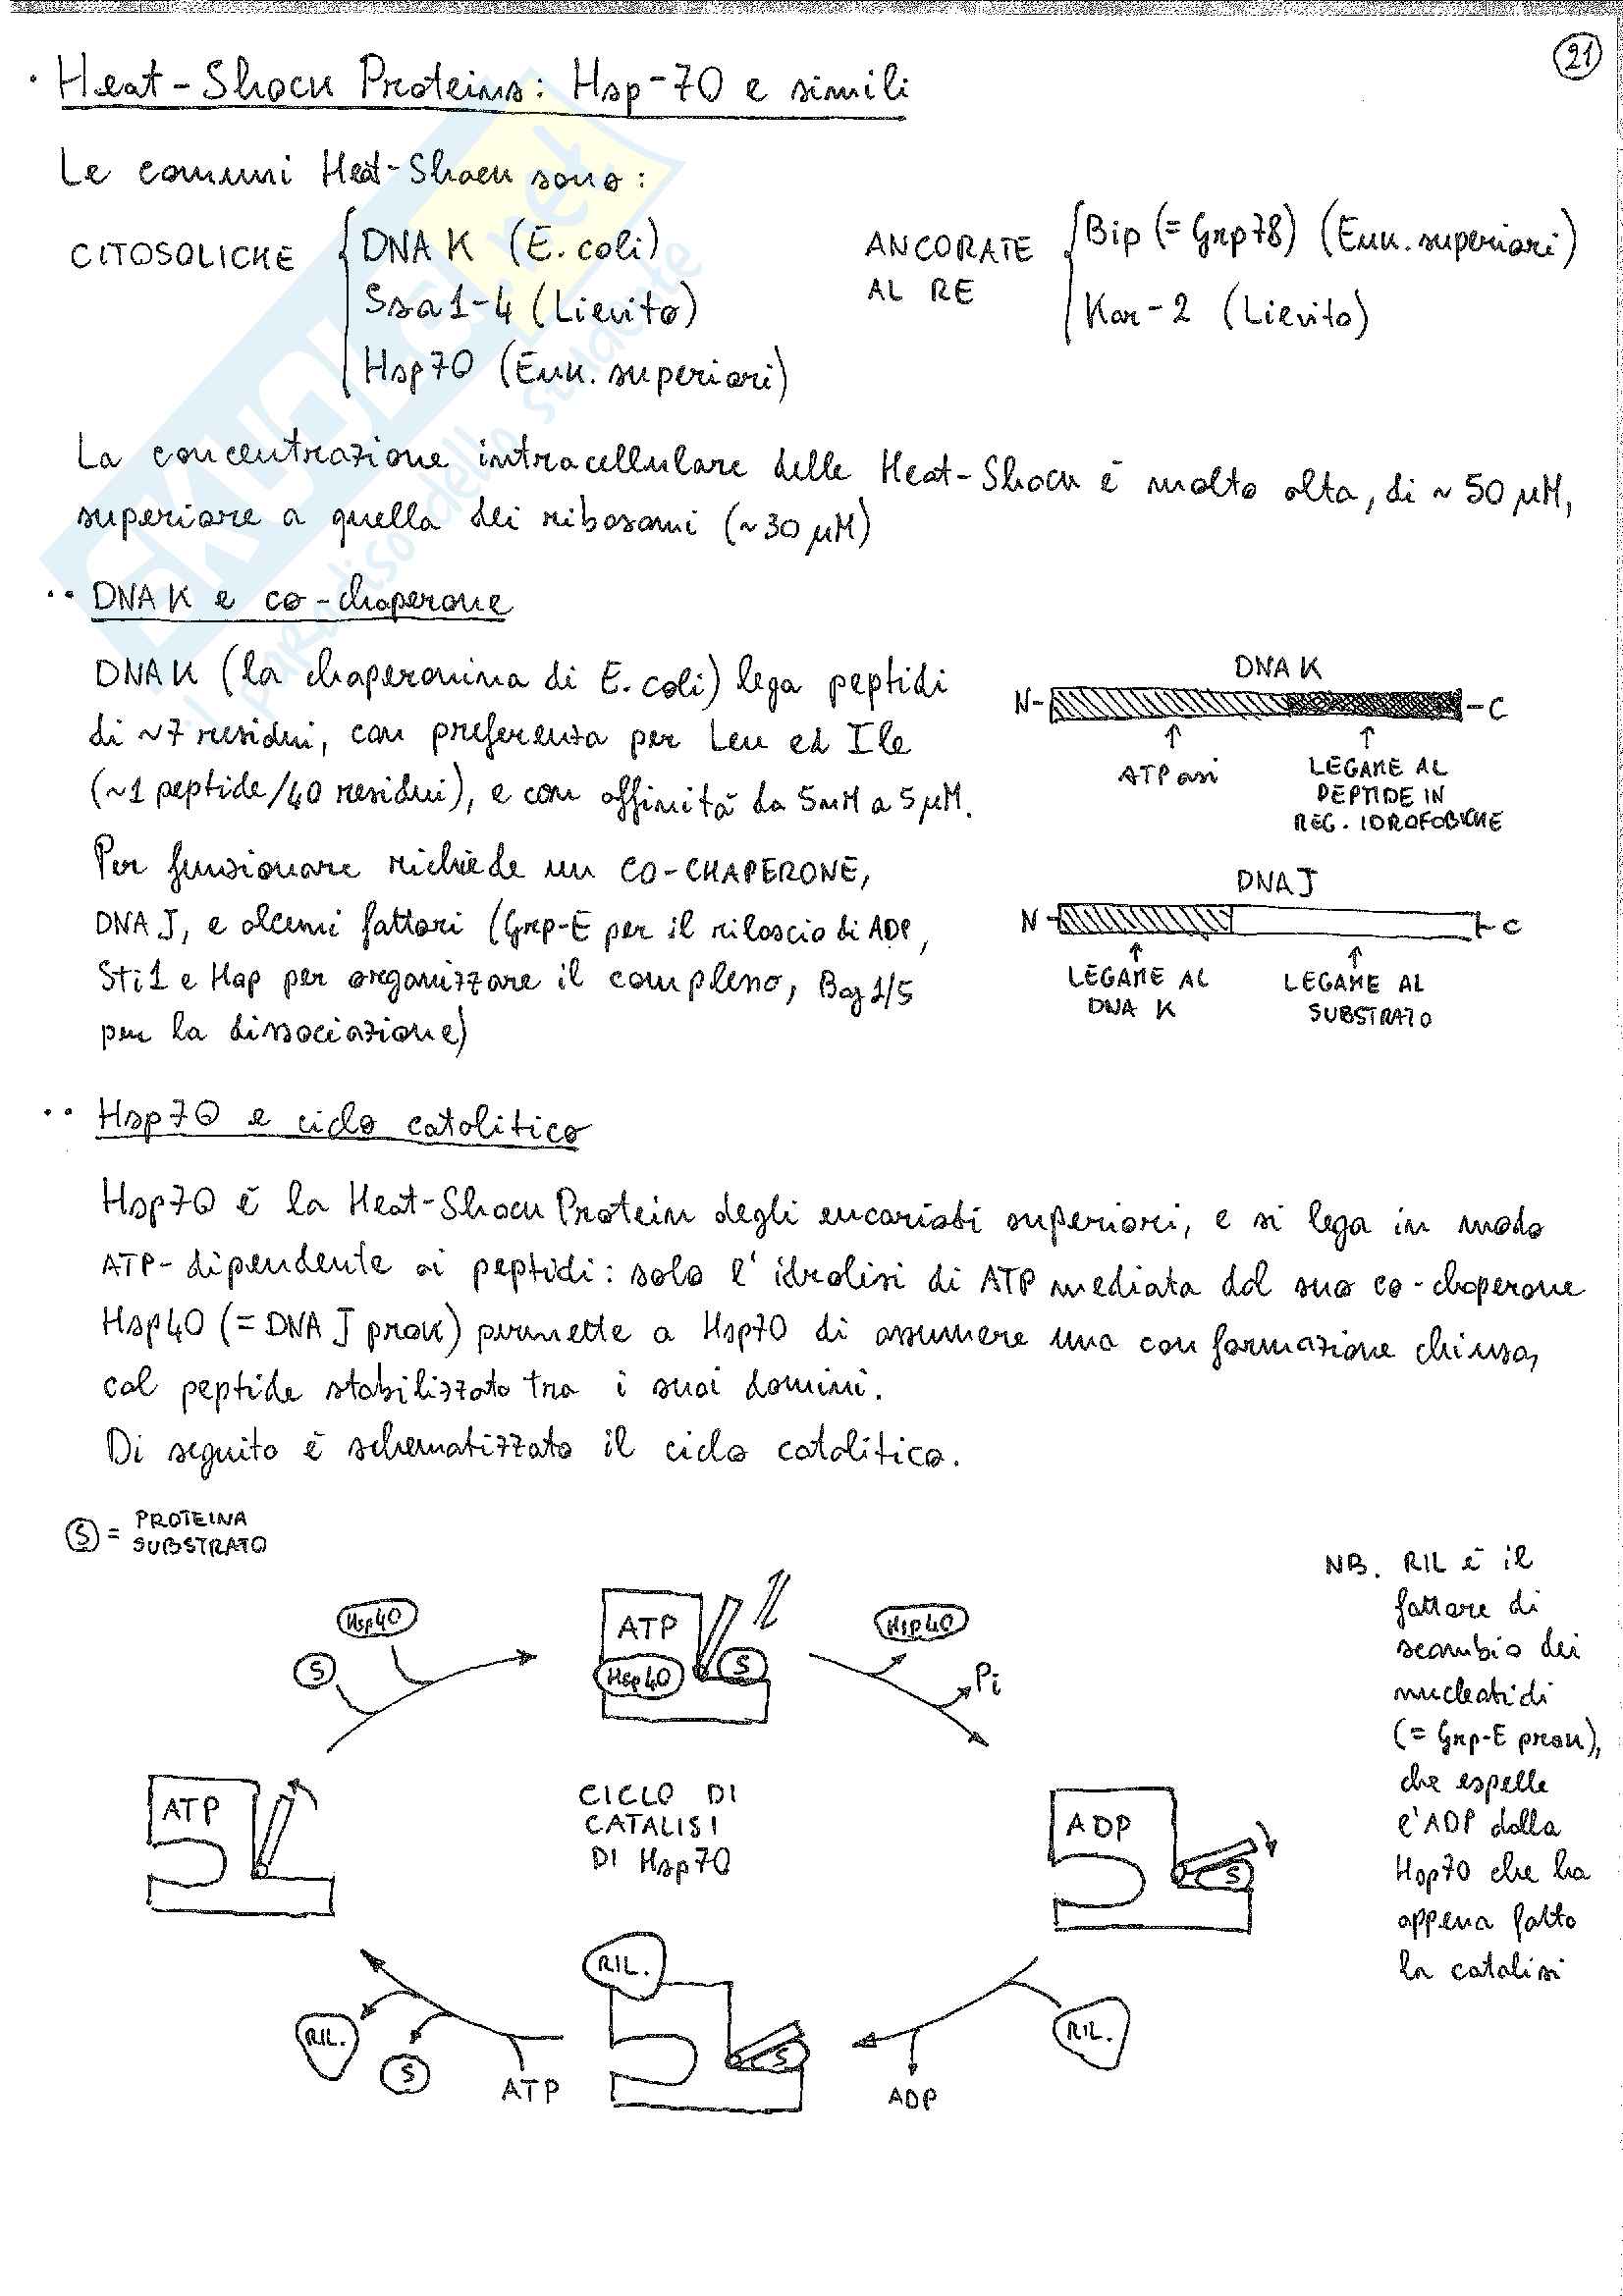 21
· Heat-Shock Proteins: Hsp-70 e simili
Le comuni Heat-Shock sono:
CITOSOLICHE
DNA K (E. coli)
Ssa1-4 (Lievito)
Hsp70 (Euk. superiori)
ANCORATE
AL RE
Bip (= Grp78) (Euk. superiori)
Kar-2 (Lievito)
La concentrazione intracellulare delle Heat-Shock è molto alta, di ~ 50 μM,
superiore a quella dei ribosomi (~30 μM)
·· DNA K e co-chaperone
DNA K (la chaperonina di E. coli) lega peptidi
di ~7 residui, con preferenza per Leu ed Ile
(~1 peptide/40 residui), e con affinità da 5nM a 5 μM.
Per funzionare richiede un CO-CHAPERONE,
DNA J, e alcuni fattori (Grp-E per il rilascio di ADP,
Sti1 e Hop per organizzare il complesso, Bag 1/5
per la dissociazione)
DNA K
N- -C
ATPasi
LEGAME AL
PEPTIDE IN
REG. IDROFOBICHE
DNA J
N- -C
LEGAME AL
DNA K
LEGAME AL
SUBSTRATO
·· Hsp70 e ciclo catalitico
Hsp70 è la Heat-Shock Protein degli eucarioti superiori, e si lega in modo
ATP-dipendente ai peptidi: solo l'idrolisi di ATP mediata dal suo co-chaperone
Hsp40 (= DNA J prok) permette a Hsp70 di assumere una conformazione chiusa,
col peptide stabilizzato tra i suoi domini.
Di seguito è schematizzato il ciclo catalitico.
S = PROTEINA
SUBSTRATO
Hsp40
S
ATP
Hsp40
S
Hsp40
Pi
ATP
CICLO DI
CATALISI
DI Hsp70
ADP
S
RIL.
S
RIL.
S
ATP
ADP
RIL.
NB. RIL è il
fattore di
scambio dei
nucleotidi
(= Grp-E prok),
che espelle
l'ADP dalla
Hsp70 che ha
appena fatto
la catalisi
SKUOLA.net
il paradiso dello studente